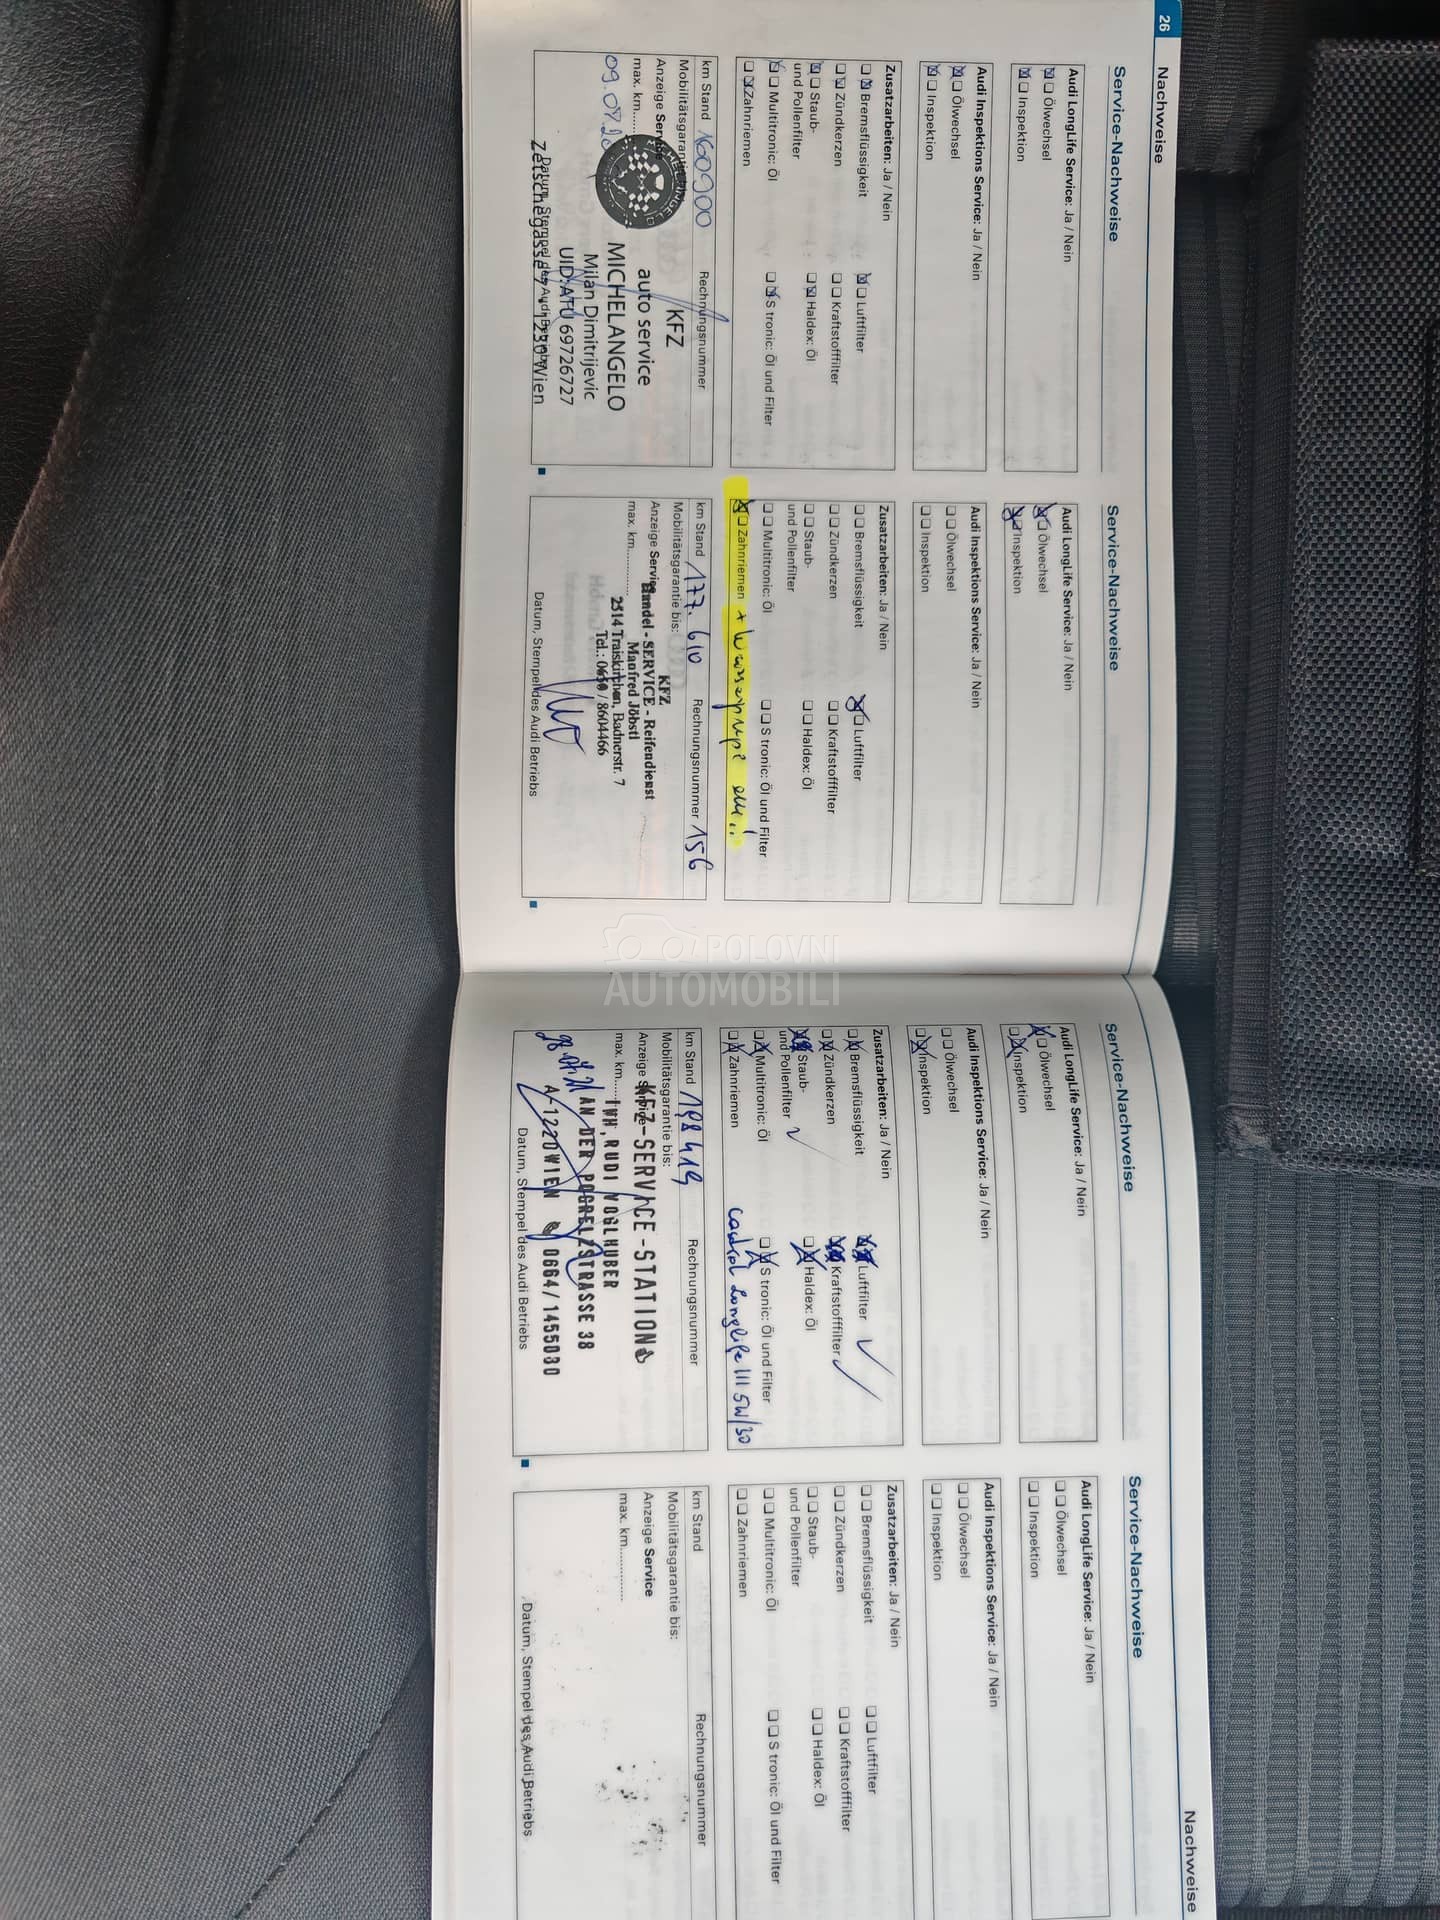 26
Nachweise
Service-Nachweise
Audi LongLife Service: Ja / Nein
Ölwechsel
Inspektion
Audi Inspektions Service: Ja / Nein
Ölwechsel
Inspektion
Zusatzarbeiten: Ja / Nein
Bremsflüssigkeit
Luftfilter
Zündkerzen
Kraftstofffilter
Staub-
und Pollenfilter
Haldex: Öl
Multitronic: Öl
S tronic: Öl und Filter
Zahnriemen
km Stand 160900
Rechnungsnummer
Mobilitätsgarantie
Anzeige Service
max. km
09.07.20
KFZ
auto service
MICHELANGELO
Milan Dimitrijevic
UID:ATU 69726727
Zetschegasse 7, 1230 Wien
Datum, Stempel des Audi Betriebs
Service-Nachweise
Audi LongLife Service: Ja / Nein
Ölwechsel
Inspektion
Audi Inspektions Service: Ja / Nein
Ölwechsel
Inspektion
Zusatzarbeiten: Ja / Nein
Bremsflüssigkeit
Luftfilter
Zündkerzen
Kraftstofffilter
Staub-
und Pollenfilter
Haldex: Öl
Multitronic: Öl
S tronic: Öl und Filter
Zahnriemen + Wasserpumpe
km Stand 177.610
Rechnungsnummer 156
Mobilitätsgarantie bis:
Anzeige Service
max. km
KFZ
Handel - SERVICE - Reifendienst
Manfred Jöbstl
2514 Traiskirchen, Badnerstr. 7
Tel.: 0650 / 8604466
Datum, Stempel des Audi Betriebs
POLOVNI
AUTOMOBILI
Service-Nachweise
Audi LongLife Service: Ja / Nein
Ölwechsel
Inspektion
Audi Inspektions Service: Ja / Nein
Ölwechsel
Inspektion
Zusatzarbeiten: Ja / Nein
Bremsflüssigkeit
Luftfilter
Zündkerzen
Kraftstofffilter
Staub-
und Pollenfilter
Haldex: Öl
Multitronic: Öl
S tronic: Öl und Filter
Zahnriemen
Castrol Longlife III 5W/30
km Stand 198419
Rechnungsnummer
Mobilitätsgarantie bis:
Anzeige Service
max. km
KFZ-SERVICE-STATION
INH. RUDI VOGLHUBER
AN DER POGRELZSTRASSE 38
A-1220WIEN 0664/1455030
Datum, Stempel des Audi Betriebs
Nachweise
Service-Nachweise
Audi LongLife Service: Ja / Nein
Ölwechsel
Inspektion
Audi Inspektions Service: Ja / Nein
Ölwechsel
Inspektion
Zusatzarbeiten: Ja / Nein
Bremsflüssigkeit
Luftfilter
Zündkerzen
Kraftstofffilter
Staub-
und Pollenfilter
Haldex: Öl
Multitronic: Öl
S tronic: Öl und Filter
Zahnriemen
km Stand
Rechnungsnummer
Mobilitätsgarantie bis:
Anzeige Service
max. km
Datum, Stempel des Audi Betriebs